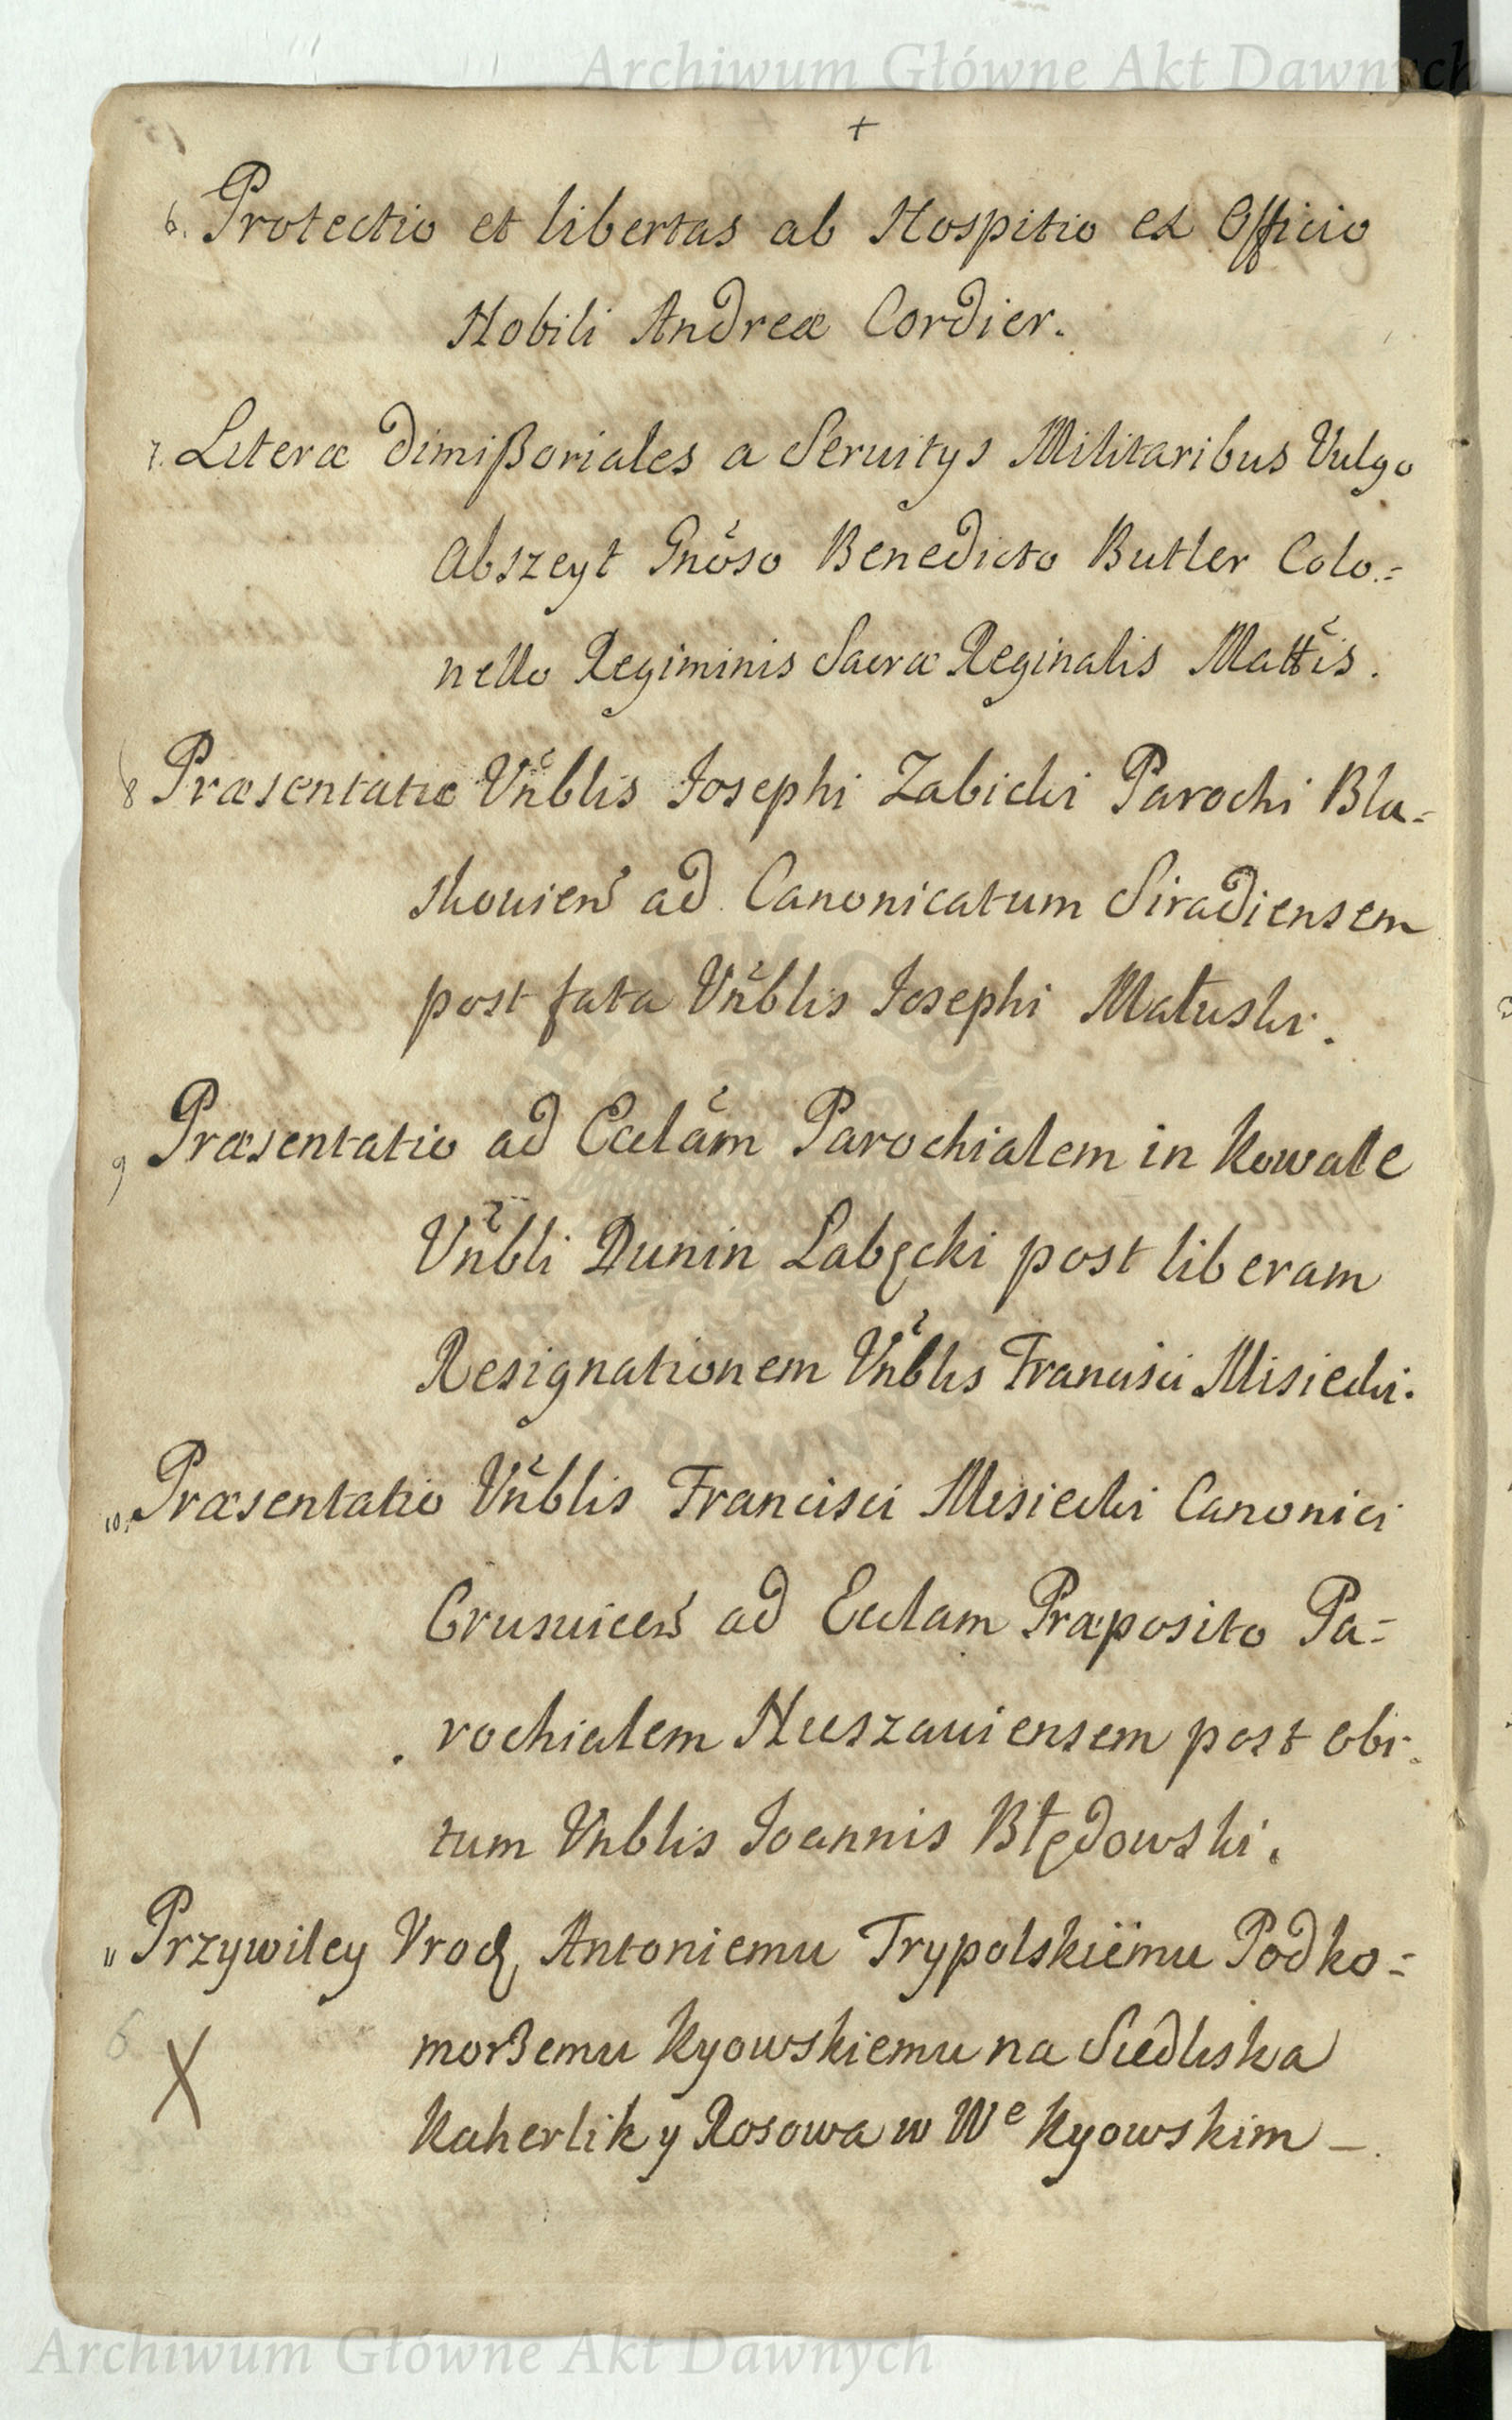 Archiwum Główne Akt Dawnych
+
6. Protectio et libertas ab Hospitio ex Officio
Nobili Andreæ Cordier.
7. Literæ dimißoriales a Seruitys Militaribus Vulgo
Abszeyt Gnõso Benedicto Butler Colo.=
nello Regiminis Sacræ Reginalis Mattis.
8 Præsentatio Vñblis Josephi Zabicki Parochi Bla=
skouien̄ ad Canonicatum Siradiensem
post fata Vñblis Josephi Małuski.
9 Præsentatio ad Ecclãm Parochialem in Kowale
Vñbli Dunin Labęcki post liberam
Resignationem Vñblis Francisci Misiecki.
10. Præsentatio Vñblis Francisci Misiecki Canonici
Crusuicen̄ ad Ecclam Præposito Pa=
rochialem Huszauiensem post obi=
tum Vnblis Joannis Błędowski.
11 Przywiley Vrodz Antoniemu Trypolskiemu Podko=
morzemu Kyowskiemu na Siedliska
6 X
Kaherlik y Rosowa w Wᵉ Kyowskim –.
Archiwum Główne Akt Dawnych